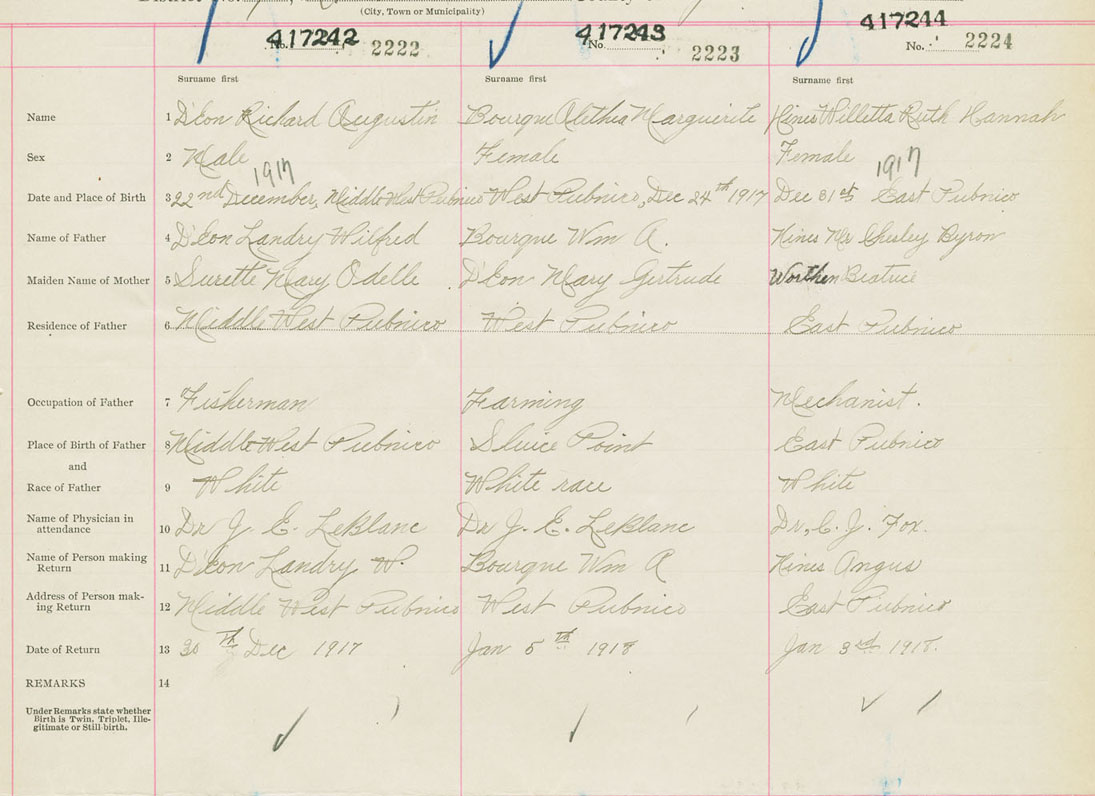 District No.
(City, Town or Municipality)
417242 417243 417244
No. 2222 No. 2223 No. 2224
Surname first Surname first Surname first
Name 1 D'Eon Richard Augustin Bourque Alethea Marguerite Hines Willetta Ruth Hannah
Sex 2 Male Female Female
1917 1917
Date and Place of Birth 3 22nd December, Middle West Pubnico West Pubnico, Dec 24th 1917 Dec 31st East Pubnico
Name of Father 4 D'Eon Landry Wilfred Bourque Wm A. Hines Mr Chesley Byron
Maiden Name of Mother 5 Surette Mary Odelle D'Eon Mary Gertrude Worthen Beatrice
Residence of Father 6 Middle West Pubnico West Pubnico East Pubnico
Occupation of Father 7 Fisherman Farming Mechanist.
Place of Birth of Father 8 Middle West Pubnico Sluice Point East Pubnico
and
Race of Father 9 White White race White
Name of Physician in
attendance 10 Dr J. E. LeBlanc Dr J. E. LeBlanc Dr, C. J. Fox.
Name of Person making
Return 11 D'Eon Landry W. Bourque Wm A Hines Angus
Address of Person mak-
ing Return 12 Middle West Pubnico West Pubnico East Pubnico
Date of Return 13 30th Dec 1917 Jan 5th 1918 Jan 3rd 1918.
REMARKS 14
Under Remarks state whether
Birth is Twin, Triplet, Ille-
gitimate or Still-birth.